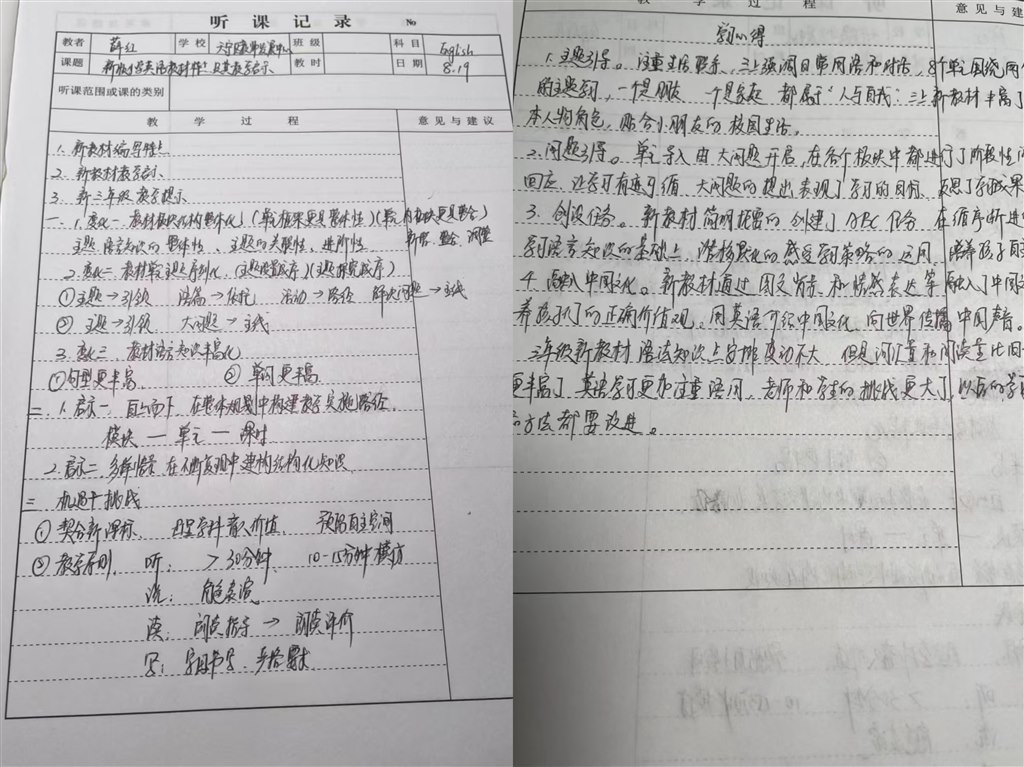 听课记录 No
教者 薛红 学校 班级 科目 English
课题 新 英语教材特点及其教学启示 教时 日期 8.19
听课范围或课的类别
教学过程 意见与建议
1. 新教材编写特点
2. 新教材教学启示
3. 新三年级教学提示
一、1. 变化一 教材板块结构整体化 (单元框架更具整体性) (单元内板块更具整合)
主题语言知识的整体性、主题的关联性、进阶性 新增 整合 调整
2. 变化二 教材单元主题序列化 (主题设置成序) (主题探究成序)
① 主题→引领 语篇→依托 活动→路径 解决问题→主线
② 主题→引领 大问题→主线
3. 变化三 教材语言知识丰富化
① 句型更丰富 ② 单词更丰富
二、1. 启示一、自上而下,在整体规划中构建教学实施路径。
模块—单元—课时
2. 启示二、多样情景,在不断复现中建构结构化知识
三 机遇+挑战
① 契合新课标, 凸显学科育人价值, 预留自主空间
② 教学原则, 听: >30分钟、 10-15分钟模仿
说: 角色表演
读: 阅读指导 → 阅读评价
写: 字母书写 严格要求
教学过程 意见与建
学习心得
1. 主题引导。注重生活联系,三上强调日常用语和对话,8个单元围绕两个
的主题学习,一个是朋友 一个是家庭 都属于"人与自我":三上新教材丰富了
本人物角色,贴合小朋友的校园生活。
2. 问题引导。单元导入由大问题开启,在各个板块中都进行了阶段性
回应,让学习有迹可循,大问题的提出表现了学习的目标,
3. 创设任务。新教材简明扼要的创建了ABC任务,在循序渐进
学习语言知识的基础上,潜移默化的感受学习策略的运用,培养孩子自
4. 融入中国文化。新教材通过图文背景和情感表达等融入了中国文
养孩子们的正确价值观。用英语介绍中国文化,向世界传播中国声音。
三年级新教材语法知识点安排变动不大,但是词汇量和阅读量比旧
更丰富了,英语学习更加注重语用,老师和学生的挑战更大了,以后的学
方法都要改进。